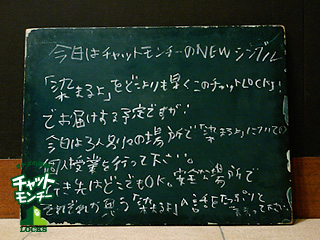 今日はチャットモンチーのNEWシングル
「染まるよ」をどこよりも早くこのチャットLOCKS!
でお届けする予定ですが!
今日は3人別々の場所で「染まるよ」についての
個人授業を行って下さい。
行き先はどこでもOK。安全な場所で
それぞれが思う「染まるよ」への言をたっぷりと
言って下さい
チャット
モンチー
LOCKS!